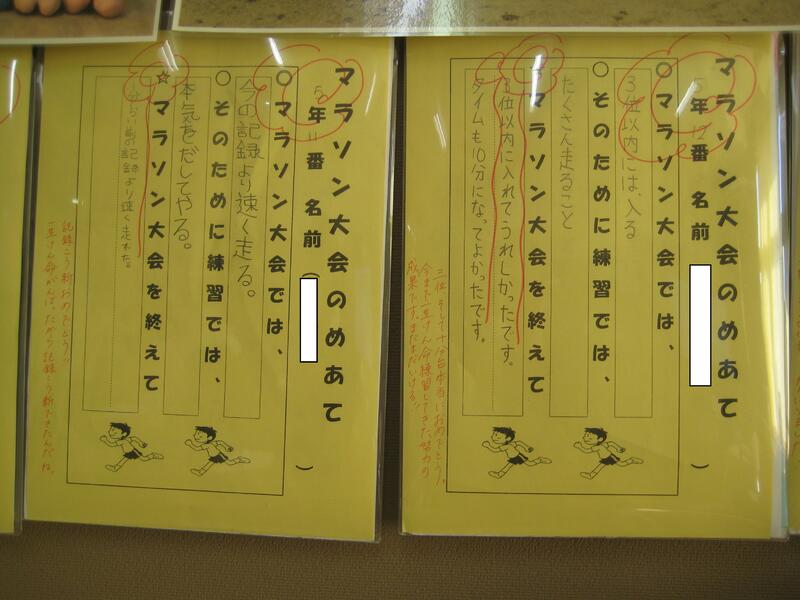 マラソン大会のめあて
5年12番 名前( )
○マラソン大会では、
3位以内には、入る
○そのために練習では、
たくさん走ること
☆マラソン大会を終えて
3位以内に入れてうれしかったです。
タイムも10分になってよかったです。
三位、そして十分台本当におめでとう。
今まで一生けん命練習してきた努力の
成果です。まだまだいける!
マラソン大会のめあて
5年11番 名前( )
○マラソン大会では、
今の記録より速く走る。
○そのために練習では、
本気をだしてやる。
☆マラソン大会を終えて
記録より速く走れた。
記録こう新おめでとう!!
一生けん命がんばったから記録こう新できたんだね。